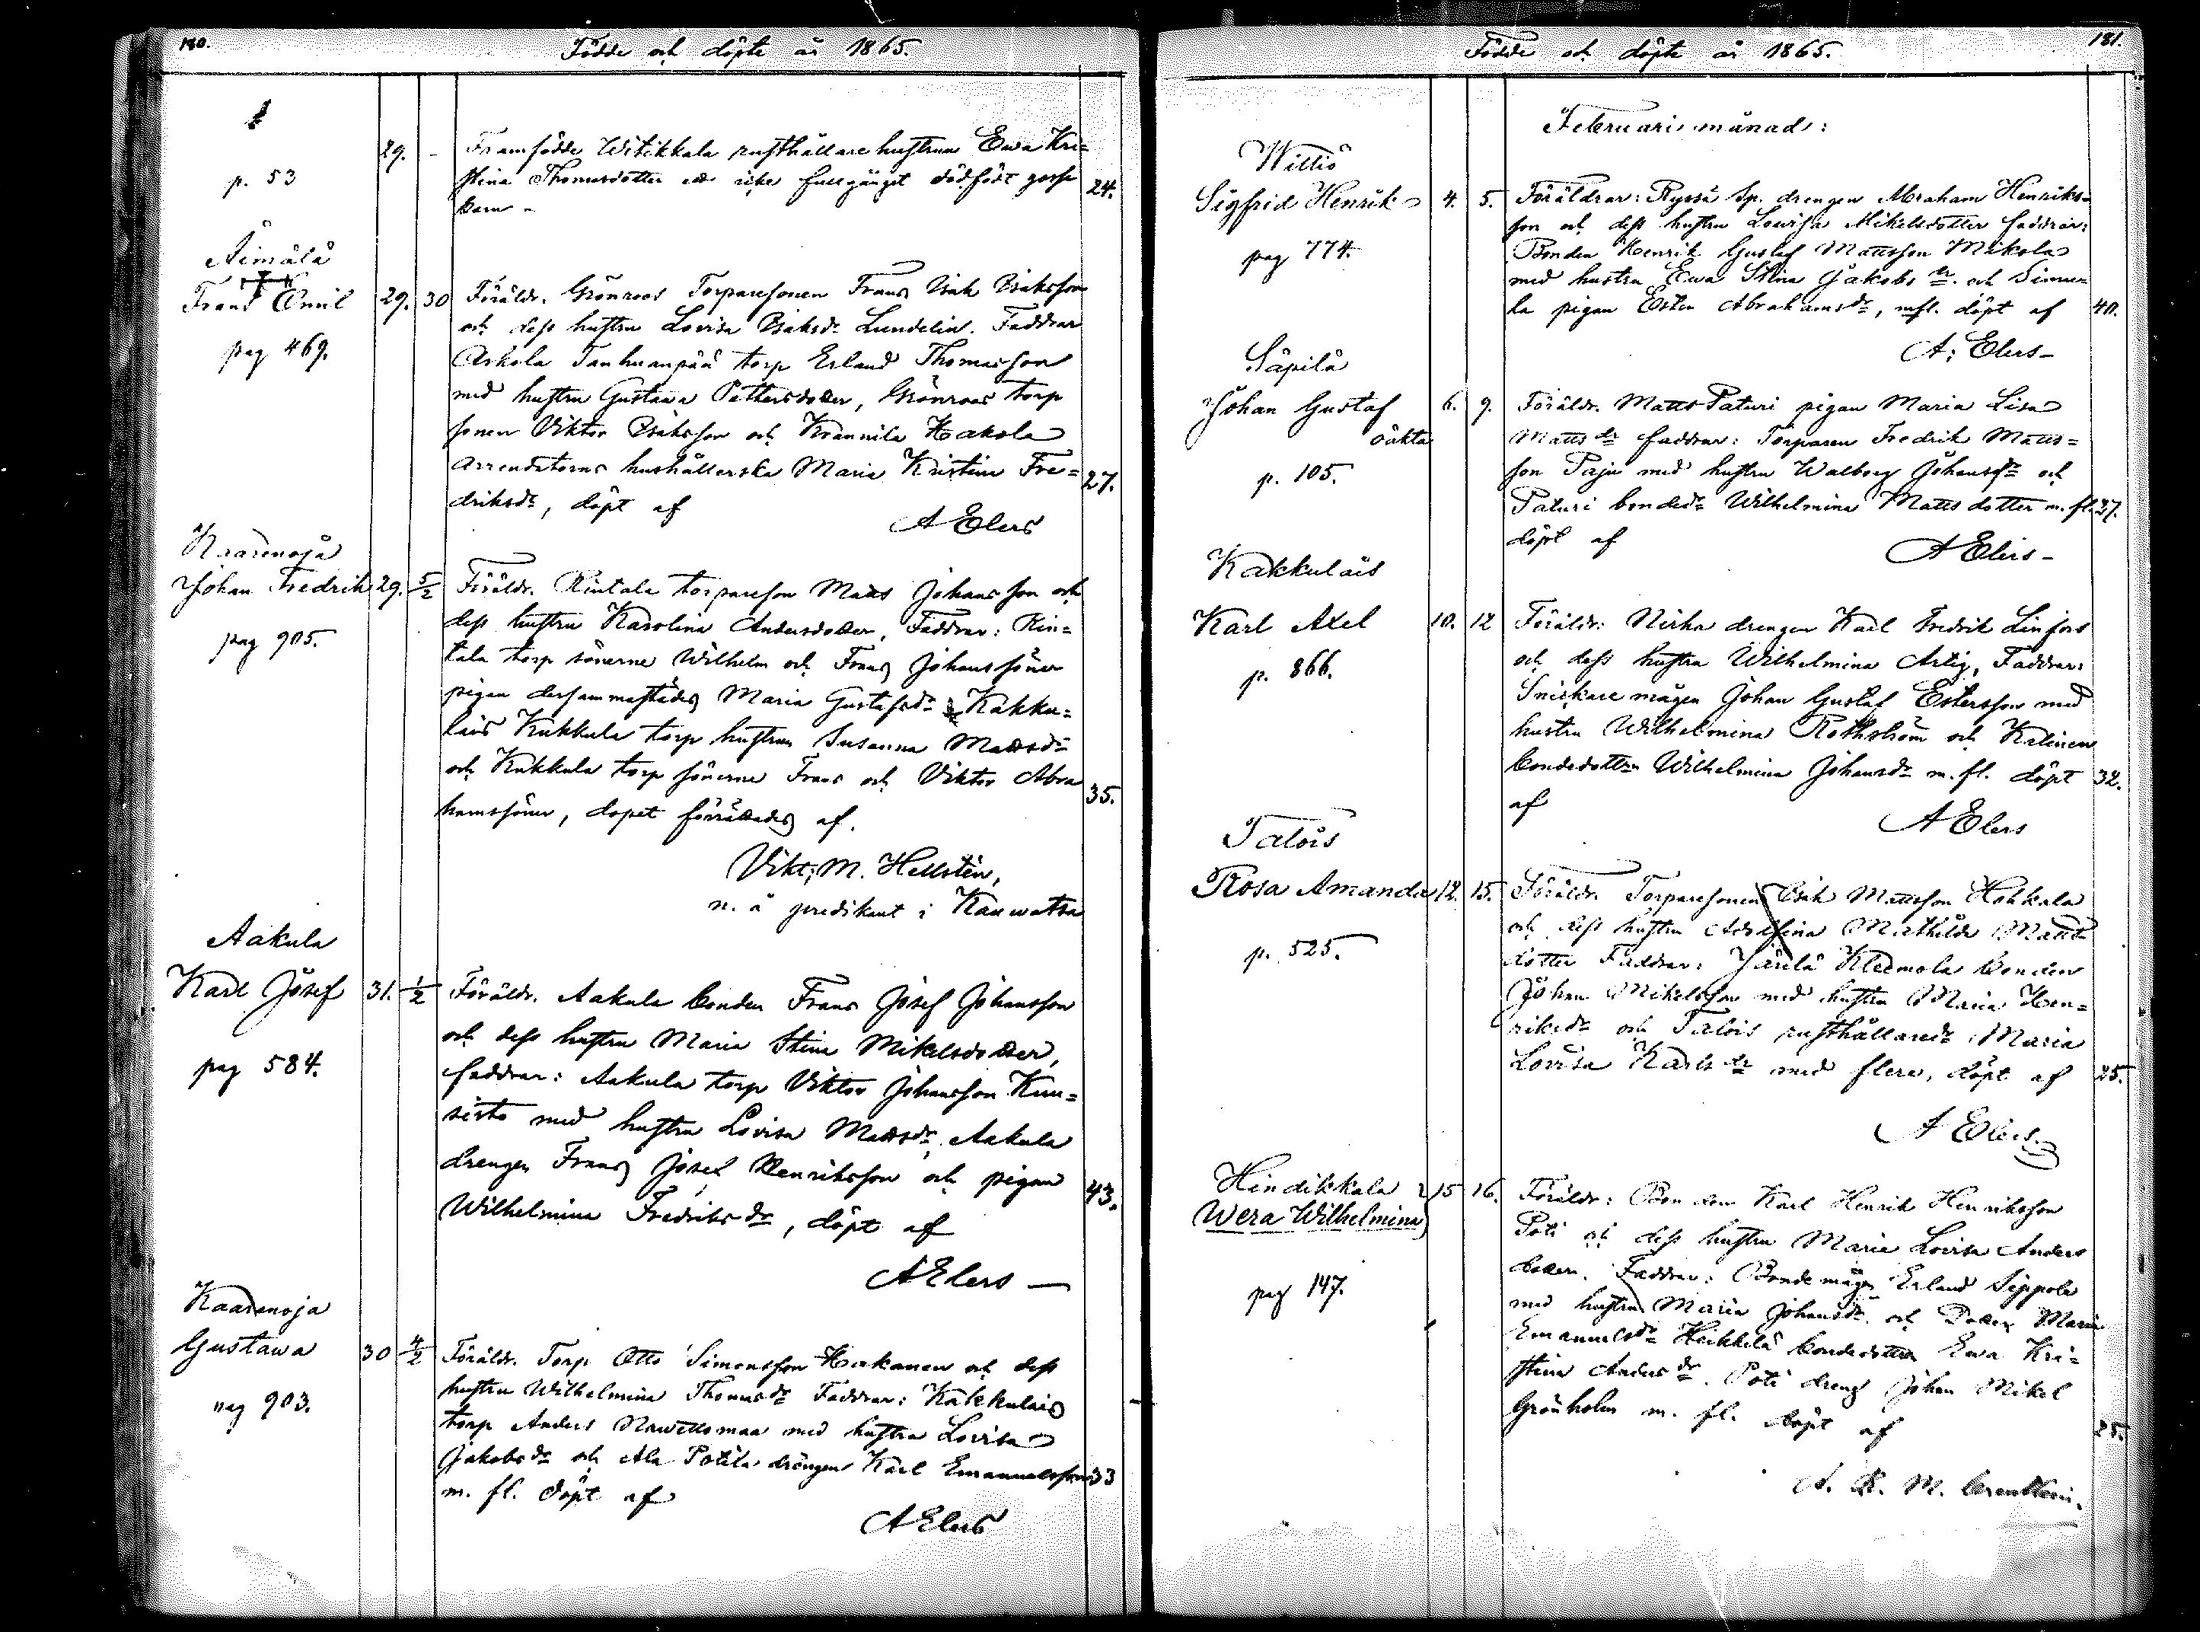 180.
Födde och döpte år 1865.
29. - Framfödde Witikkala rusthållare hustrun Ewa Kri=
stina Thomasdotter ett icke fullgånget dödfödt gosse
p. 53
24.
barn -
Äimälä
Frans Emil 29. 30 Föräldr. Grönroos Torparesonen Frans Isak Isaksson
och dess hustru Lovisa Isaksdr Lundelin. Faddrar
pag 469.
Askola Tanhuanpää torp Erland Thomasson
med hustru Gustava Pettersdotter, Grönroos torp
sonen Viktor Isaksson och Krannila Hakola
arrendatorns hushållerska Maria Kristina Fre=
27.
driksdr, döpt af
A Elers
Kraarenoja
Johan Fredrik 29. 5/2 Föräldr. Rintala torpareson Matts Johansson och
dess hustru Karolina Andersdotter, Faddrar: Rin=
pag 905.
tala torp sönerne Wilhelm och Frans Johanssöner
pigan dersammastädes Maria Gustafsdr Kakku=
lais Kukkula torp hustrun Susanna Mattsdr
och Kukkula torp sönerne Frans och Viktor Abra
35.
hamssöner, dopet förrättades af.
Vikt. M. Hellstén,
n. å predikant i Kauwatsa
Aakula
Karl Josef 31. 1/2 Föräldr. Aakula bonden Frans Josef Johansson
och dess hustru Maria Stina Mikelsdotter,
pag 584.
faddrar: Aakula torp Viktor Johansson Kuu=
sisto med hustru Lovisa Mattsdr, Aakula
drengen Frans Josef Henriksson och pigan
43.
Wilhelmina Fredriksdr, döpt af
A Elers —
Kaarenoja
Gustava 30 4/2 Föräldr. Torp Otto Simonsson Hakanen och dess
hustru Wilhelmina Thomasdr Faddrar: Kakkulais
pag 903.
torp Anders med hustru Lovisa
Jakobsdr och Ala Potila drängen Karl Emanuelsson 33
m. fl. döpt af
A Elers
181.
Födde och döpte år 1865.
Februari månad:
Willio
Sigfrid Henrik 4. 5. Föräldrar: Ryssä Sp. drengen Abraham Henriks=
son och dess hustru Lowisa Mikelsdotter faddrar:
pag 774.
Bonden Henrik Gustaf Mattsson Mikola
med hustru Ewa Stina Jakobsdr. och Simu=
la pigan Ester Abrahamsdr, mfl. döpt af 40.
A: Elers -
Säpilä
Johan Gustaf 6. 9. Föräldr. Matts Paturi pigan Maria Lisa
oäkta
Mattsdr faddrar: Torparen Fredrik Matts=
p. 105.
son Paju med hustru Walborg Johansdr och
Paturi bondedr Wilhelmina Mattsdotter m. fl. 27.
döpt af
A Elers -
Kakkulais
Karl Axel 10. 12 Föräldr: Nirha drengen Karl Fredrik Linfors
och dess hustru Wilhelmina Artig, Faddrar:
p. 866.
Snickare mågen Johan Gustaf Estersson med
hustru Wilhelmina Rothström och Katinen
bondedottern Wilhelmina Johansdr m. fl. döpt 32.
af
A Elers
Talois
Rosa Amanda 12. 15. Föräldr. Torparesonen Isak Mattsson Hohkala
och dess hustru Adolfina Mathilda Matts
p. 525.
dotter Faddrar: Järilä Kleemola bonden
Johan Mikelsson med hustru Maria Hen=
riksdr och Talois rusthållaredr Maria
Lovisa Karlsdr med flere, döpt af 25.
A Elers
Hindikkala
Wera Wilhelmina 15 16. Föräldr: Bonden Karl Henrik Henriksson
Poti och dess hustru Maria Lovisa Anders
dotter. Faddrar: Bondemågen Erland Seppola
pag 147.
med hustrun Maria Johansdr. och Dotter Maria
Emanuelsdr Heikkilä bondedottren Ewa Kri=
stina Andersdr. Poti dreng Johan Mikel
Grönholm m. fl. döpt af
25.